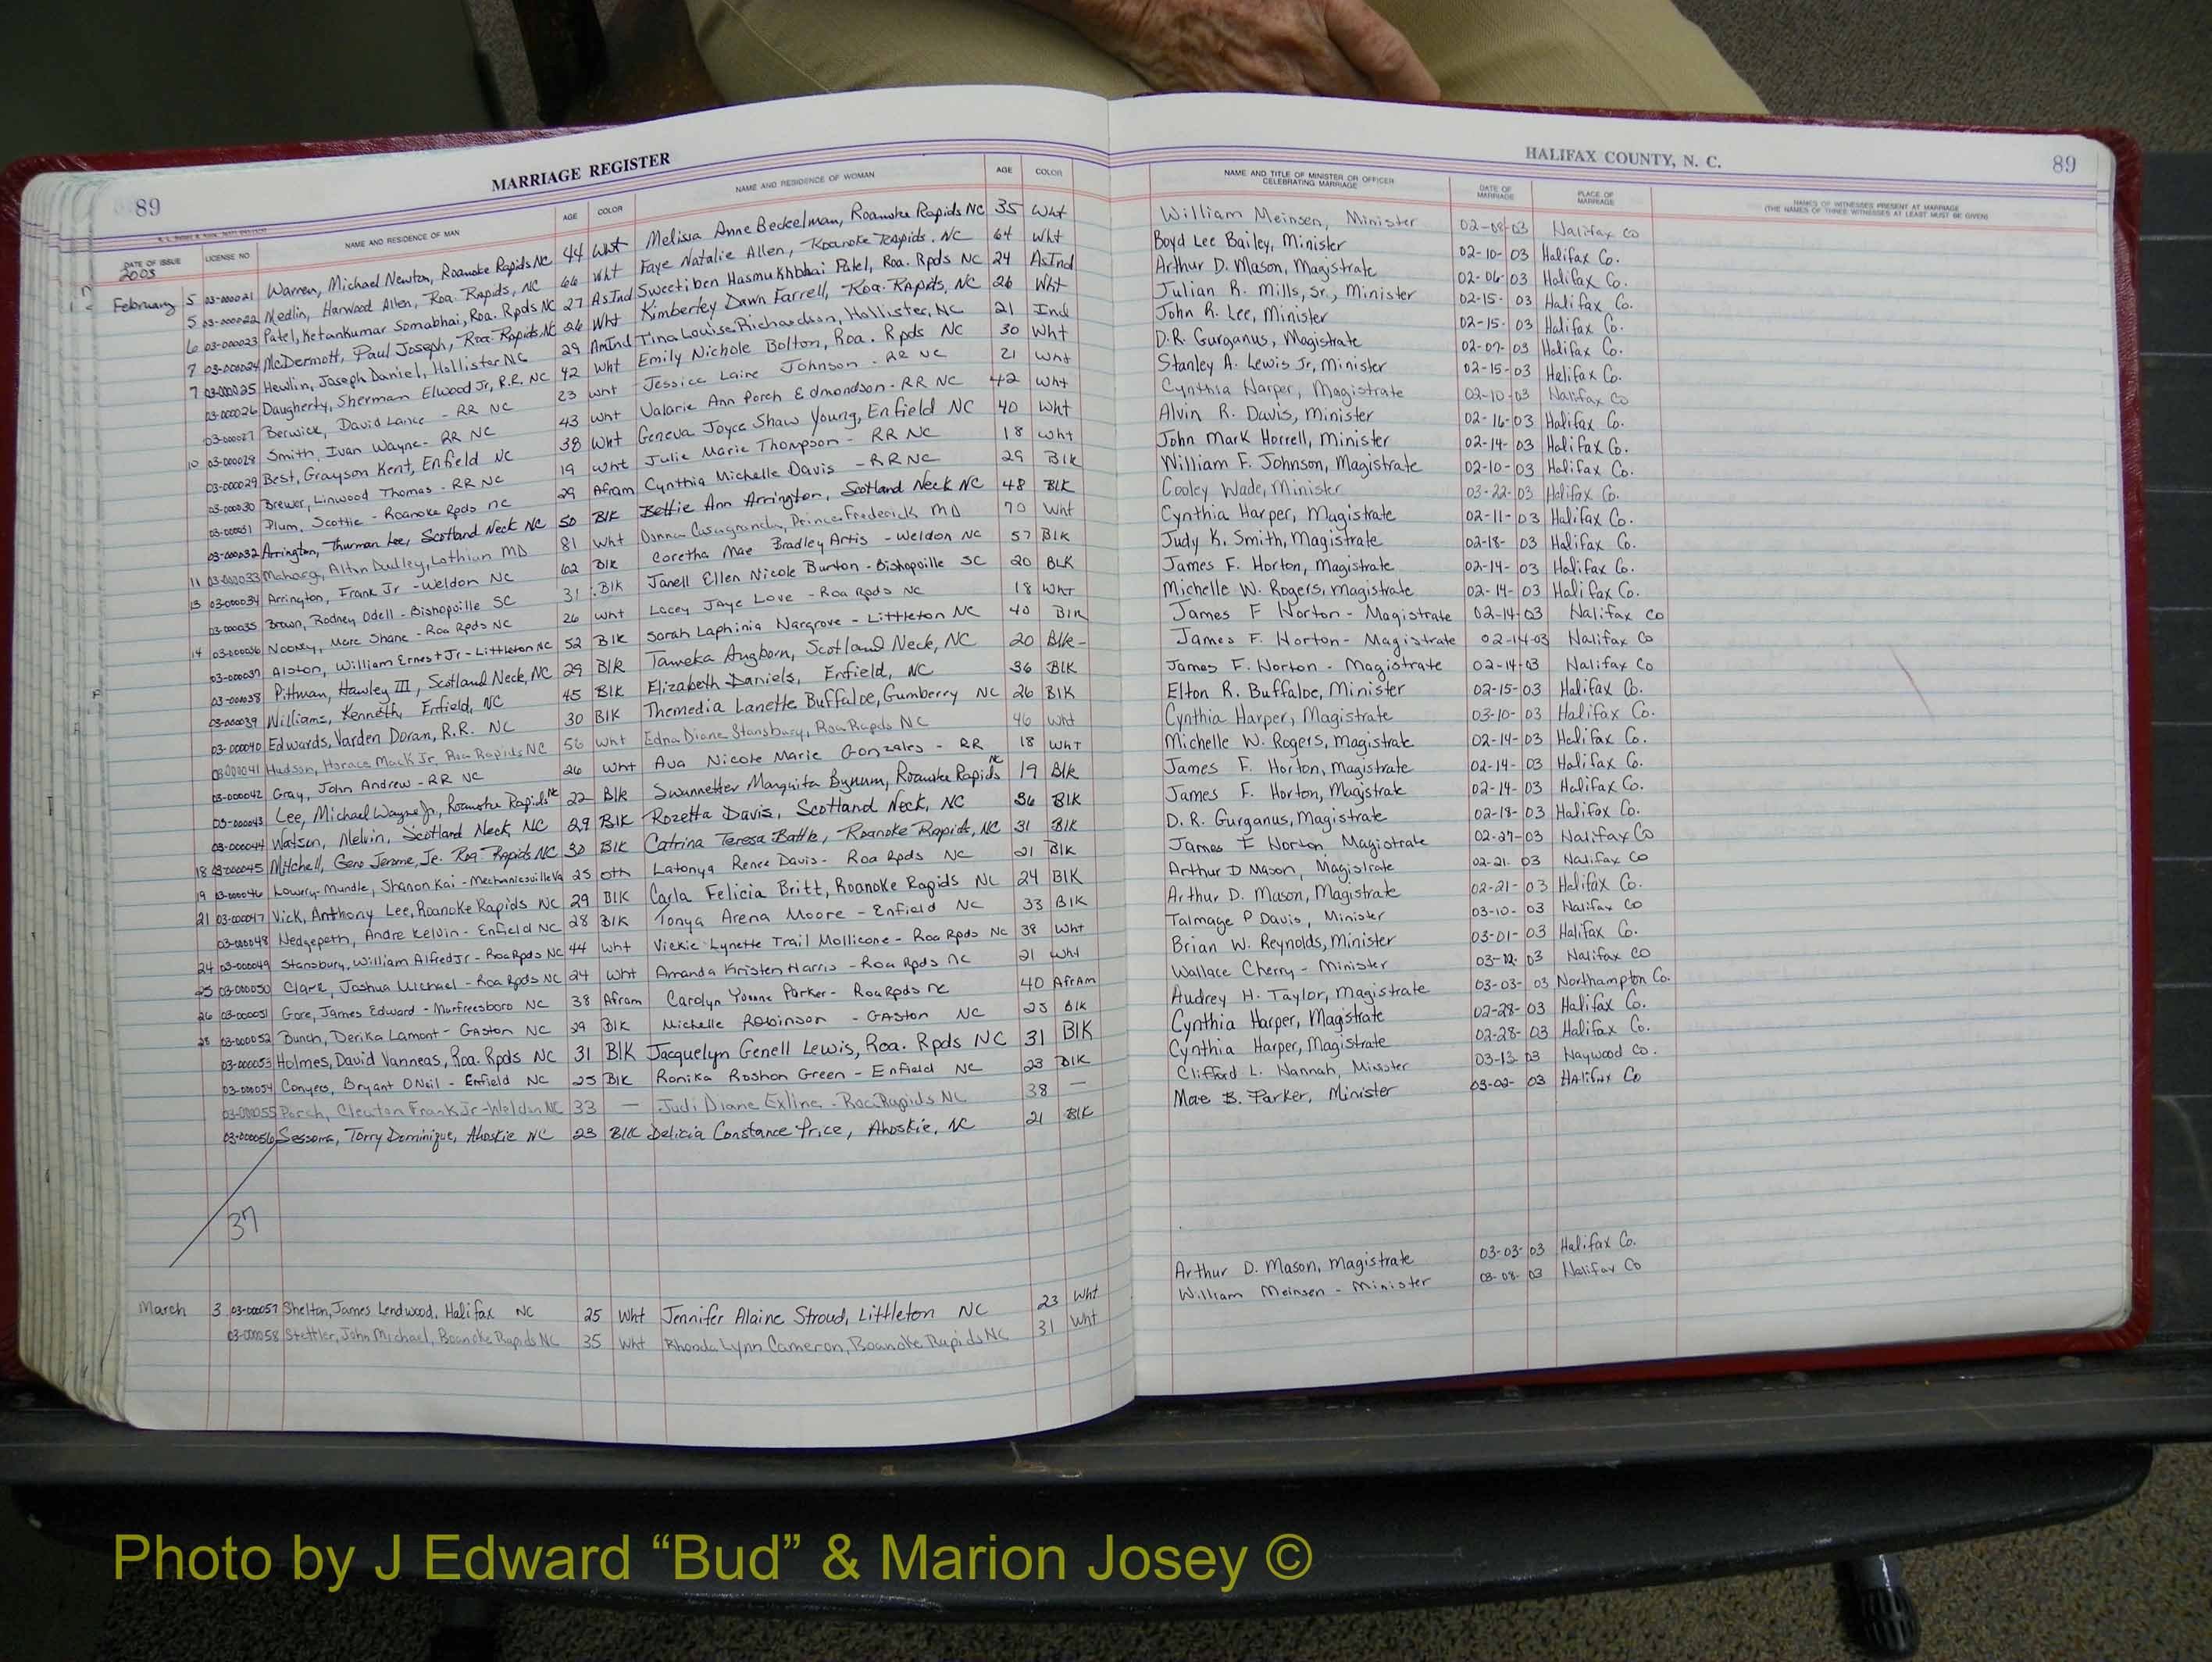 MARRIAGE REGISTER
HALIFAX COUNTY, N. C.
89
89
DATE OF ISSUE LICENSE NO NAME AND RESIDENCE OF MAN AGE COLOR NAME AND RESIDENCE OF WOMAN AGE COLOR NAME AND TITLE OF MINISTER OR OFFICER CELEBRATING MARRIAGE DATE OF MARRIAGE PLACE OF MARRIAGE NAMES OF WITNESSES PRESENT AT MARRIAGE (THE NAMES OF THREE WITNESSES AT LEAST MUST BE GIVEN)
2003
February 5 03-000021 Warren, Michael Newton, Roanoke Rapids NC 44 Wht Melissa Anne Beckelman, Roanoke Rapids NC 35 Wht William Meinsen, Minister 02-08-03 Halifax Co
5 03-000022 Medlin, Harwood Allen, Roa. Rapids, NC 66 Wht Faye Natalie Allen, Roanoke Rapids, NC 64 Wht Boyd Lee Bailey, Minister 02-10-03 Halifax Co.
6 03-000023 Patel, Ketankumar Somabhai, Roa. Rpds NC 27 AsInd Sweetiben Hasmukhbhai Patel, Roa. Rpds NC 24 AsInd Arthur D. Mason, Magistrate 02-06-03 Halifax Co.
7 03-000024 McDermott, Paul Joseph, Roa. Rapids, NC 26 Wht Kimberley Dawn Farrell, Roa. Rapids, NC 26 Wht Julian R. Mills, Sr., Minister 02-15-03 Halifax Co.
7 03-000025 Hewlin, Joseph Daniel, Hollister NC 29 AmInd Tina Louise Richardson, Hollister, NC 21 Ind John R. Lee, Minister 02-15-03 Halifax Co.
03-000026 Daugherty, Sherman Elwood Jr, R.R. NC 42 Wht Emily Nichole Bolton, Roa. Rpds NC 30 Wht D.R. Gurganus, Magistrate 02-07-03 Halifax Co.
03-000027 Berwick, David Lance - RR NC 23 Wht Jessica Laine Johnson - RR NC 21 Wht Stanley A. Lewis Jr, Minister 02-15-03 Halifax Co.
10 03-000028 Smith, Ivan Wayne - RR NC 43 Wht Valarie Ann Porch Edmondson - RR NC 42 Wht Cynthia Harper, Magistrate 02-10-03 Halifax Co
03-000029 Best, Grayson Kent, Enfield NC 38 Wht Geneva Joyce Shaw Young, Enfield NC 40 Wht Alvin R. Davis, Minister 02-16-03 Halifax Co.
03-000030 Brewer, Linwood Thomas - RR NC 19 Wht Julie Marie Thompson - RR NC 18 Wht John Mark Horrell, Minister 02-14-03 Halifax Co.
03-000031 Plum, Scottie - Roanoke Rpds NC 29 Afram Cynthia Michelle Davis - RR NC 29 Blk William F. Johnson, Magistrate 02-10-03 Halifax Co.
03-000032 Arrington, Thurman Lee, Scotland Neck NC 50 Blk Bettie Ann Arrington, Scotland Neck NC 48 Blk Cooley Wade, Minister 03-22-03 Halifax Co.
11 03-000033 Alton Dudley, Lothian MD 81 Wht Donna Prince Frederick MD 70 Wht Cynthia Harper, Magistrate 02-11-03 Halifax Co.
13 03-000034 Arrington, Frank Jr - Weldon NC 62 Blk Coretha Mae Bradley Artis - Weldon NC 57 Blk Judy K. Smith, Magistrate 02-18-03 Halifax Co.
03-000035 Brown, Rodney Odell - Bishopville SC 31 Blk Janell Ellen Nicole Burton - Bishopville SC 20 Blk James F. Horton, Magistrate 02-14-03 Halifax Co.
14 03-000036 Marc Shane - Roa Rpds NC 26 Wht Lacey Jaye Love - Roa Rpds NC 18 Wht Michelle W. Rogers, Magistrate 02-14-03 Halifax Co.
03-000037 Alston, William Ernest Jr - Littleton NC 52 Blk Sarah Laphinia Hargrove - Littleton NC 40 Blk James F Horton - Magistrate 02-14-03 Halifax Co
03-000038 Pittman, Hawley III, Scotland Neck, NC 29 Blk Tameka Scotland Neck, NC 20 Blk James F. Horton - Magistrate 02-14-03 Halifax Co
03-000039 Williams, Kenneth, Enfield, NC 45 Blk Elizabeth Daniels, Enfield, NC 36 Blk James F. Horton - Magistrate 02-14-03 Halifax Co
03-000040 Edwards, Varden Doran, R.R. NC 30 Blk Themedia Lanette Buffaloe, Gumberry NC 26 Blk Elton R. Buffaloe, Minister 02-15-03 Halifax Co.
03-000041 Hudson, Horace Mack Jr, Roa Rapids NC 56 Wht Edna Diane Stansbury, Roa Rapids NC 46 Wht Cynthia Harper, Magistrate 03-10-03 Halifax Co.
03-000042 Gray, John Andrew - RR NC 26 Wht Ava Nicole Marie Gonzales - RR 18 Wht Michelle W. Rogers, Magistrate 02-14-03 Halifax Co.
03-000043 Lee, Michael Wayne Jr, Roanoke Rapids NC 22 Blk Swannetter Marquita Bynum, Roanoke Rapids NC 19 Blk James F. Horton, Magistrate 02-14-03 Halifax Co.
03-000044 Watson, Melvin, Scotland Neck, NC 29 Blk Rozetta Davis, Scotland Neck, NC 36 Blk James F. Horton, Magistrate 02-14-03 Halifax Co.
18 03-000045 Mitchell, Gene Jerome, Jr. Roa. Rapids NC 30 Blk Catrina Teresa Battle, Roanoke Rapids, NC 31 Blk D. R. Gurganus, Magistrate 02-18-03 Halifax Co.
19 03-000046 Lowery-Mundle, Shanon Kai - Mechanicsville Va 25 oth Latonya Renee Davis - Roa Rpds NC 21 Blk James F Horton Magistrate 02-27-03 Halifax Co
21 03-000047 Vick, Anthony Lee, Roanoke Rapids NC 29 Blk Carla Felicia Britt, Roanoke Rapids NC 24 Blk Arthur D Mason, Magistrate 02-21-03 Halifax Co
03-000048 Hedgepeth, Andre Kelvin - Enfield NC 28 Blk Tonya Arena Moore - Enfield NC 33 Blk Arthur D. Mason, Magistrate 02-21-03 Halifax Co.
24 03-000049 Stansbury, William Alfred Jr - Roa Rpds NC 44 Wht Vickie Lynette Trail Mollicone - Roa Rpds NC 38 Wht Talmage P Davis, Minister 03-10-03 Halifax Co
25 03-000050 Clark, Joshua Michael - Roa Rpds NC 24 Wht Amanda Kristen Harris - Roa Rpds NC 21 Wht Brian W. Reynolds, Minister 03-01-03 Halifax Co.
26 03-000051 Gore, James Edward - Murfreesboro NC 38 Afram Carolyn Yvonne Parker - Roa Rpds NC 40 AfrAm Wallace Cherry - Minister 03-12-03 Halifax Co
28 03-000052 Bunch, Derika Lamont - Gaston NC 29 Blk Michelle Robinson - Gaston NC 25 Blk Audrey H. Taylor, Magistrate 03-03-03 Northampton Co.
03-000053 Holmes, David Vanneas, Roa. Rpds NC 31 Blk Jacquelyn Genell Lewis, Roa. Rpds NC 31 Blk Cynthia Harper, Magistrate 02-28-03 Halifax Co.
03-000054 Conyers, Bryant ONeil - Enfield NC 25 Blk Ronika Roshon Green - Enfield NC 23 Blk Cynthia Harper, Magistrate 02-28-03 Halifax Co.
03-000055 Porch, Cleuton Frank Jr - Weldon NC 33 — Judi Diane Exline - Roa. Rapids NC 38 — Clifford L. Hannah, Minister 03-13-03 Haywood Co.
03-000056 Sessoms, Torry Dominique, Ahoskie NC 23 Blk Delicia Constance Price, Ahoskie, NC 21 Blk Mae B. Parker, Minister 03-02-03 Halifax Co
37
March 3 03-000057 Shelton, James Lendwood, Halifax NC 25 Wht Jennifer Alaine Stroud, Littleton NC 23 Wht Arthur D. Mason, Magistrate 03-03-03 Halifax Co.
03-000058 Stettler, John Michael, Roanoke Rapids NC 35 Wht Rhonda Lynn Cameron, Roanoke Rapids NC 31 Wht William Meinsen - Minister 03-08-03 Halifax Co
Photo by J Edward “Bud” & Marion Josey ©